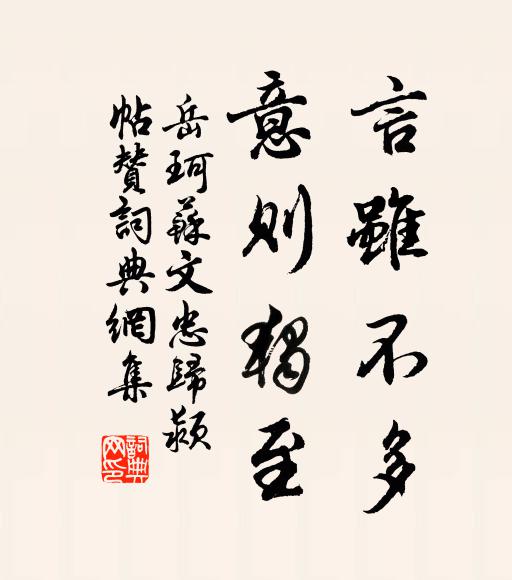 言雖不多
意則獨至
岳珂蘇文忠歸潁
帖贊詞典網集
詞典
网印